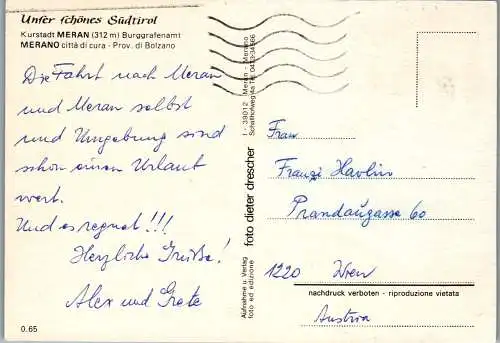 Unser schönes Südtirol
Kurstadt MERAN (312 m) Burggrafenamt
MERANO città di cura - Prov. di Bolzano
Die Fahrt nach Meran
und Meran selbst
und Umgebung sind
schon einen Urlaub
wert.
Und es regnet!!!
Herzliche Grüße!
Alex und Grete
0.65
Aufnahme u. Verlag
foto ed edizione
foto dieter drescher
I - 39012 Meran - Merano
Frau
Franzi Havlin
Prandaugasse 60
1220 Wien
nachdruck verboten - riproduzione vietata
Austria